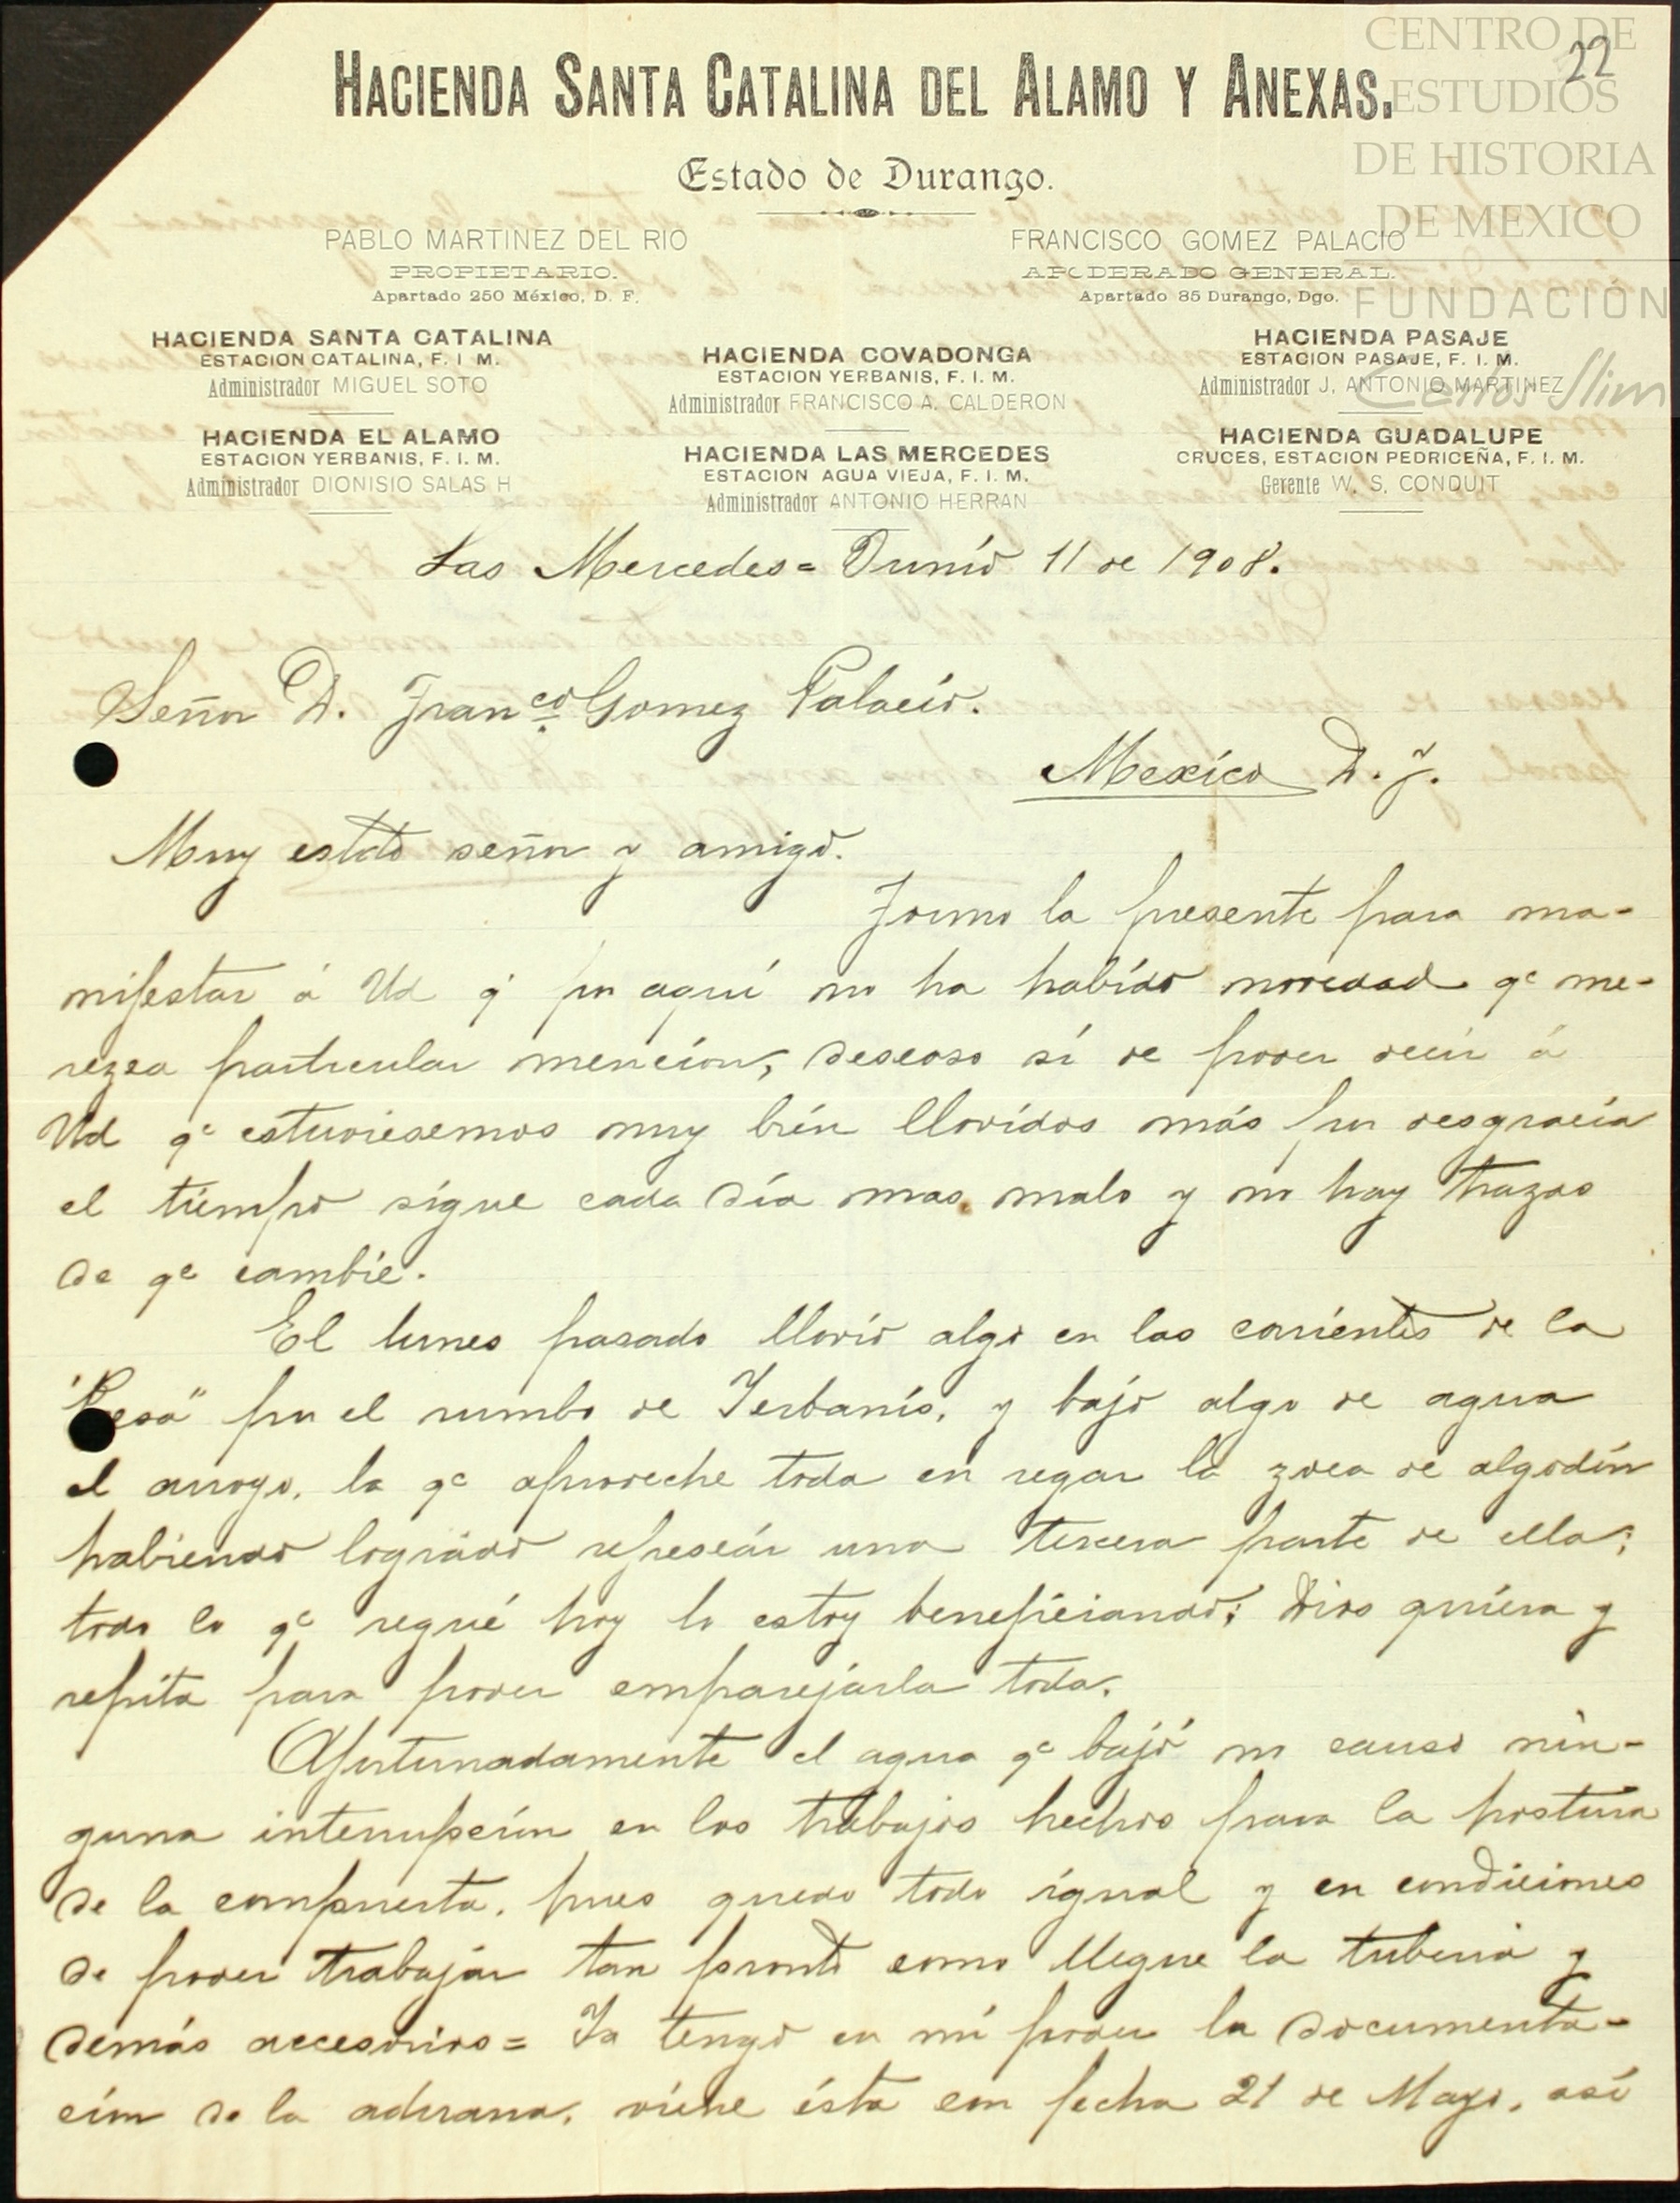 22
CENTRO DE
ESTUDIOS
DE HISTORIA
DE MEXICO
FUNDACIÓN
Carlos Slim
HACIENDA SANTA CATALINA DEL ALAMO Y ANEXAS.
Estado de Durango.
PABLO MARTINEZ DEL RIO
PROPIETARIO.
Apartado 250 México, D. F.
FRANCISCO GOMEZ PALACIO
APODERADO GENERAL.
Apartado 85 Durango, Dgo.
HACIENDA SANTA CATALINA
ESTACION CATALINA, F. I. M.
Administrador MIGUEL SOTO
HACIENDA EL ALAMO
ESTACION YERBANIS, F. I. M.
Administrador DIONISIO SALAS H
HACIENDA COVADONGA
ESTACION YERBANIS, F. I. M.
Administrador FRANCISCO A. CALDERON
HACIENDA LAS MERCEDES
ESTACION AGUA VIEJA, F. I. M.
Administrador ANTONIO HERRAN
HACIENDA PASAJE
ESTACION PASAJE, F. I. M.
Administrador J. ANTONIO MARTINEZ
HACIENDA GUADALUPE
CRUCES, ESTACION PEDRICEÑA, F. I. M.
Gerente W. S. CONDUIT
Las Mercedes = Junio 11 de 1908.
Señor D. Franco Gomez Palacio.
Mexico D. F.
Muy estdo señor y amigo.
Formo la presente para ma-
nifestar á Ud q' por aquí no ha habído novedad qe me-
rezca particular mencíon, deseoso sí de poder decir á
Ud qe estuviesemos muy bíen llovídos más por desgracía
el tíempo sígue cada día mas malo y no hay trazas
de qe cambíe.
El lunes pasado llovío algo en las corríentes de la
"Presa" por el rumbo de Yerbanís, y bajó algo de agua
el arroyo, la qe aproveche toda en regar la zoca de algodón
habiendo logrado represeár una tercera parte de ella;
todo lo qe regué hoy lo estoy beneficiando; Dios quíera y
repíta para poder emparejárla toda.
Afortunadamente el agua qe bajó no causo nin-
guna interrupcíon en los trabajos hechos para la postura
de la compuerta, pues quedo todo ígual y en condiciones
de poder trabajár tan pronto como llegue la tubería y
demás accesorios = Ya tengo en mí poder la documenta-
cíon de la aduana, víene ésta con fecha 21 de Mayo, así